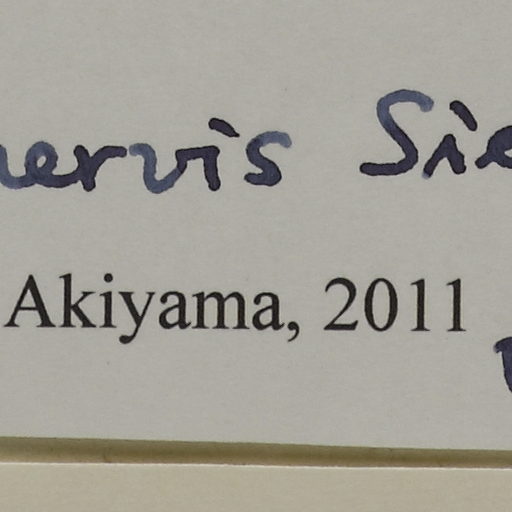 nervis Sie
Akiyama, 2011